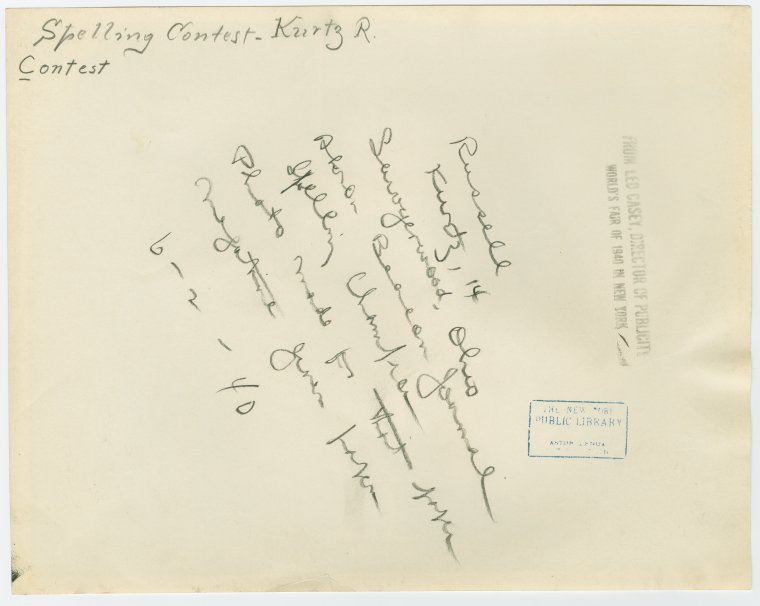 Spelling Contest - Kurtz R.
Contest
Russell
Kurtz, 14
Sawyerwood, Ohio
Akron Beacon Journal
Spelling Champion
Photo made for that paper
negative given paper
6-2-40
FROM LEO CASEY, DIRECTOR OF PUBLICITY
WORLD'S FAIR OF 1940 IN NEW YORK
THE NEW YORK
PUBLIC LIBRARY
ASTOR LENOX